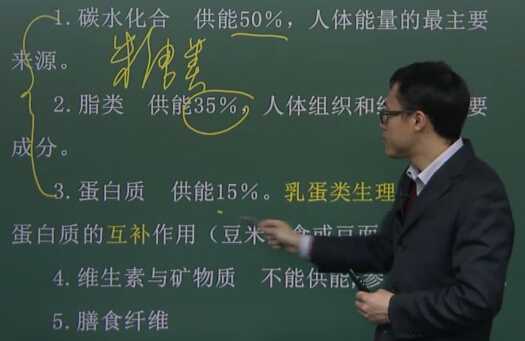 1. 碳水化合 供能50%，人体能量的最主要
来源。
糖类
2. 脂类 供能35%，人体组织和 要
成分。
3. 蛋白质 供能15%。乳蛋类生理
蛋白质的互补作用（豆米 食或豆面
4. 维生素与矿物质 不能供能 参
5. 膳食纤维